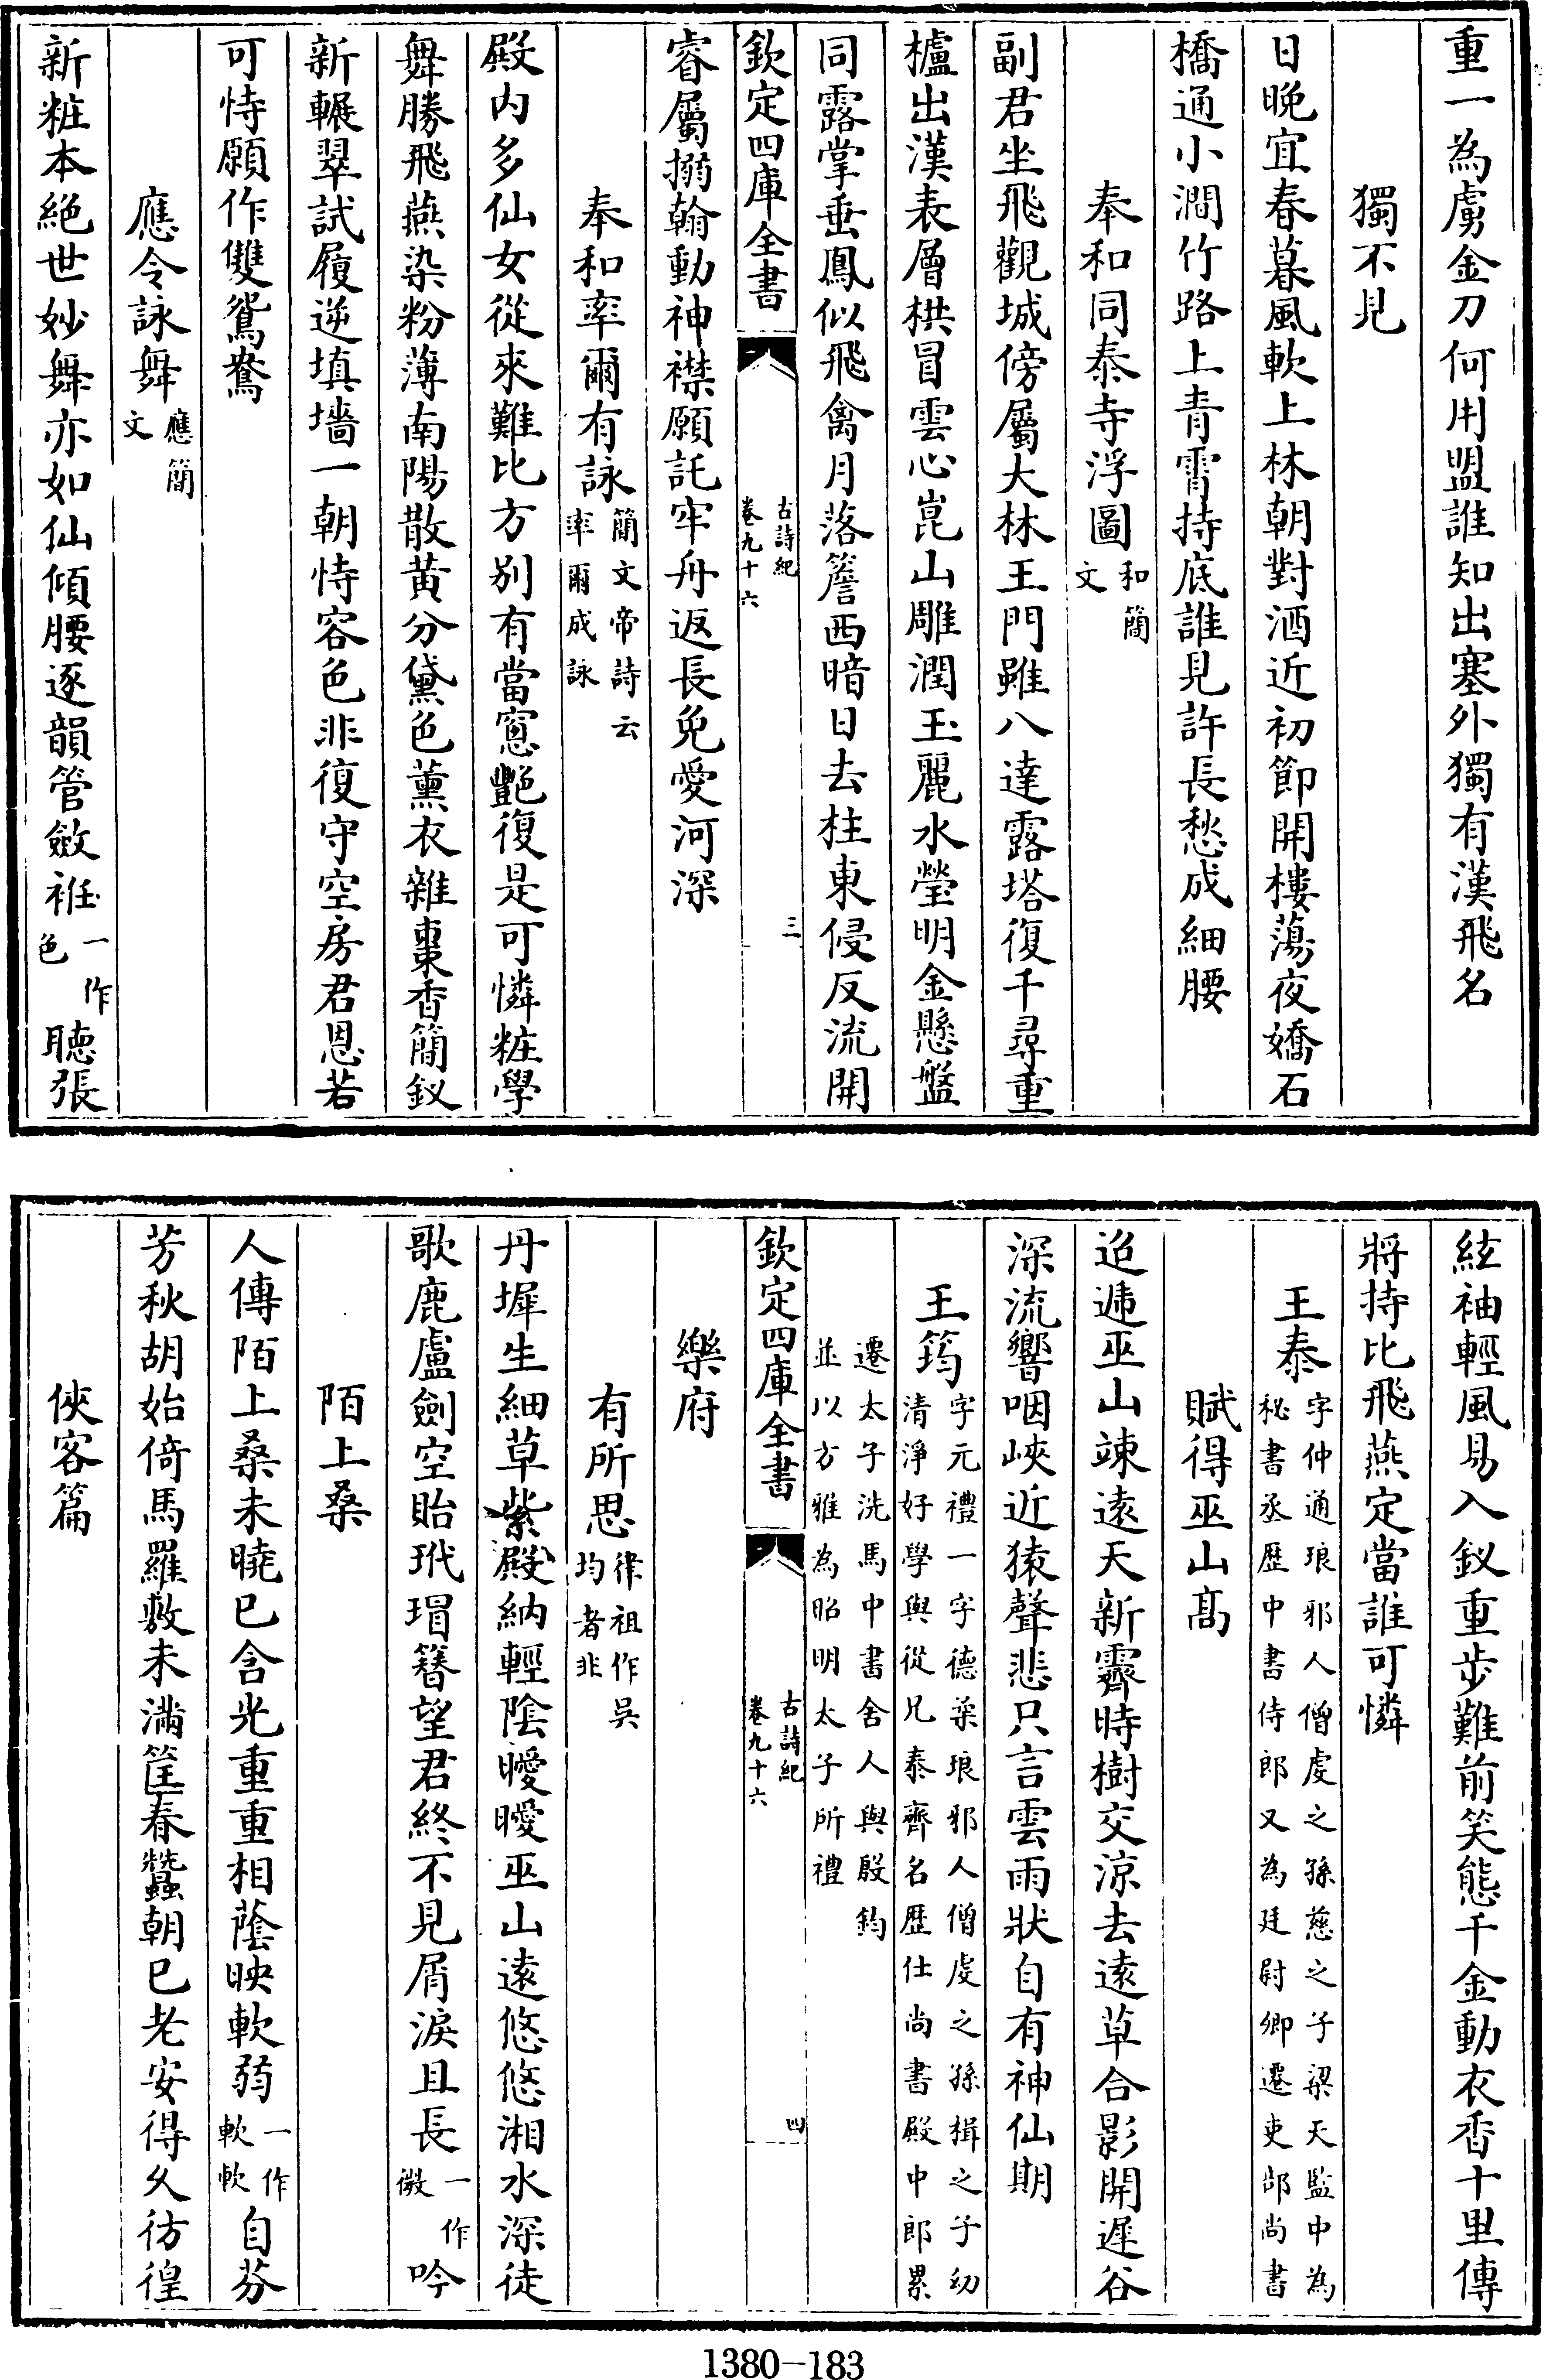 重一為虜金刀何用盟誰知出塞外獨有漢飛名
獨不見
日晚宜春暮風軟上林朝對酒近初節開樓蕩夜嬌石
橋通小澗竹路上青霄持底誰見許長愁成細腰
奉和同泰寺浮圖和簡文
副君坐飛觀城傍屬大林王門雖八達露塔復千尋重
櫨出漢表層栱冒雲心崑山雕潤玉麗水瑩明金懸盤
同露掌垂鳳似飛禽月落簷西暗日去柱東侵反流開
欽定四庫全書
古詩紀
卷九十六
三
睿屬搦翰動神襟願託牢舟返長免愛河深
奉和率爾有詠簡文帝詩云率爾成詠
殿内多仙女從來難比方别有當窻艷復是可憐粧學
舞勝飛燕染粉薄南陽散黄分黛色薰衣雜棗香簡釵
新輾翠試履逆填墻一朝恃容色非復守空房君恩若
可恃願作雙鴛鴦
應令詠舞應簡文
新粧本絶世妙舞亦如仙傾腰逐韻管斂袵一作色聽張
絃袖輕風易入釵重步難前笑態千金動衣香十里傳
將持比飛燕定當誰可憐
王泰字仲通琅邪人僧虔之孫慈之子梁天監中為秘書丞歴中書侍郎又為廷尉卿遷吏部尚書
賦得巫山髙
迢遞巫山竦遠天新霽時樹交涼去遠草合影開遲谷
深流響咽峽近猿聲悲只言雲雨狀自有神仙期
王筠字元禮一字德柔琅邪人僧虔之孫楫之子幼清淨好學與從兄泰齊名歴仕尚書殿中郎累
遷太子洗馬中書舍人與殷鈞並以方雅為昭明太子所禮
欽定四庫全書
古詩紀
卷九十六
四
樂府
有所思律祖作吳均者非
丹墀生細草紫殿納輕陰曖曖巫山遠悠悠湘水深徒
歌鹿盧劍空貽玳瑁簪望君終不見屑淚且長一作微吟
陌上桑
人傳陌上桑未曉已含光重重相蔭映軟弱一作軟軟自芬
芳秋胡始倚馬羅敷未滿筐春蠶朝已老安得久彷徨
俠客篇
1380-183